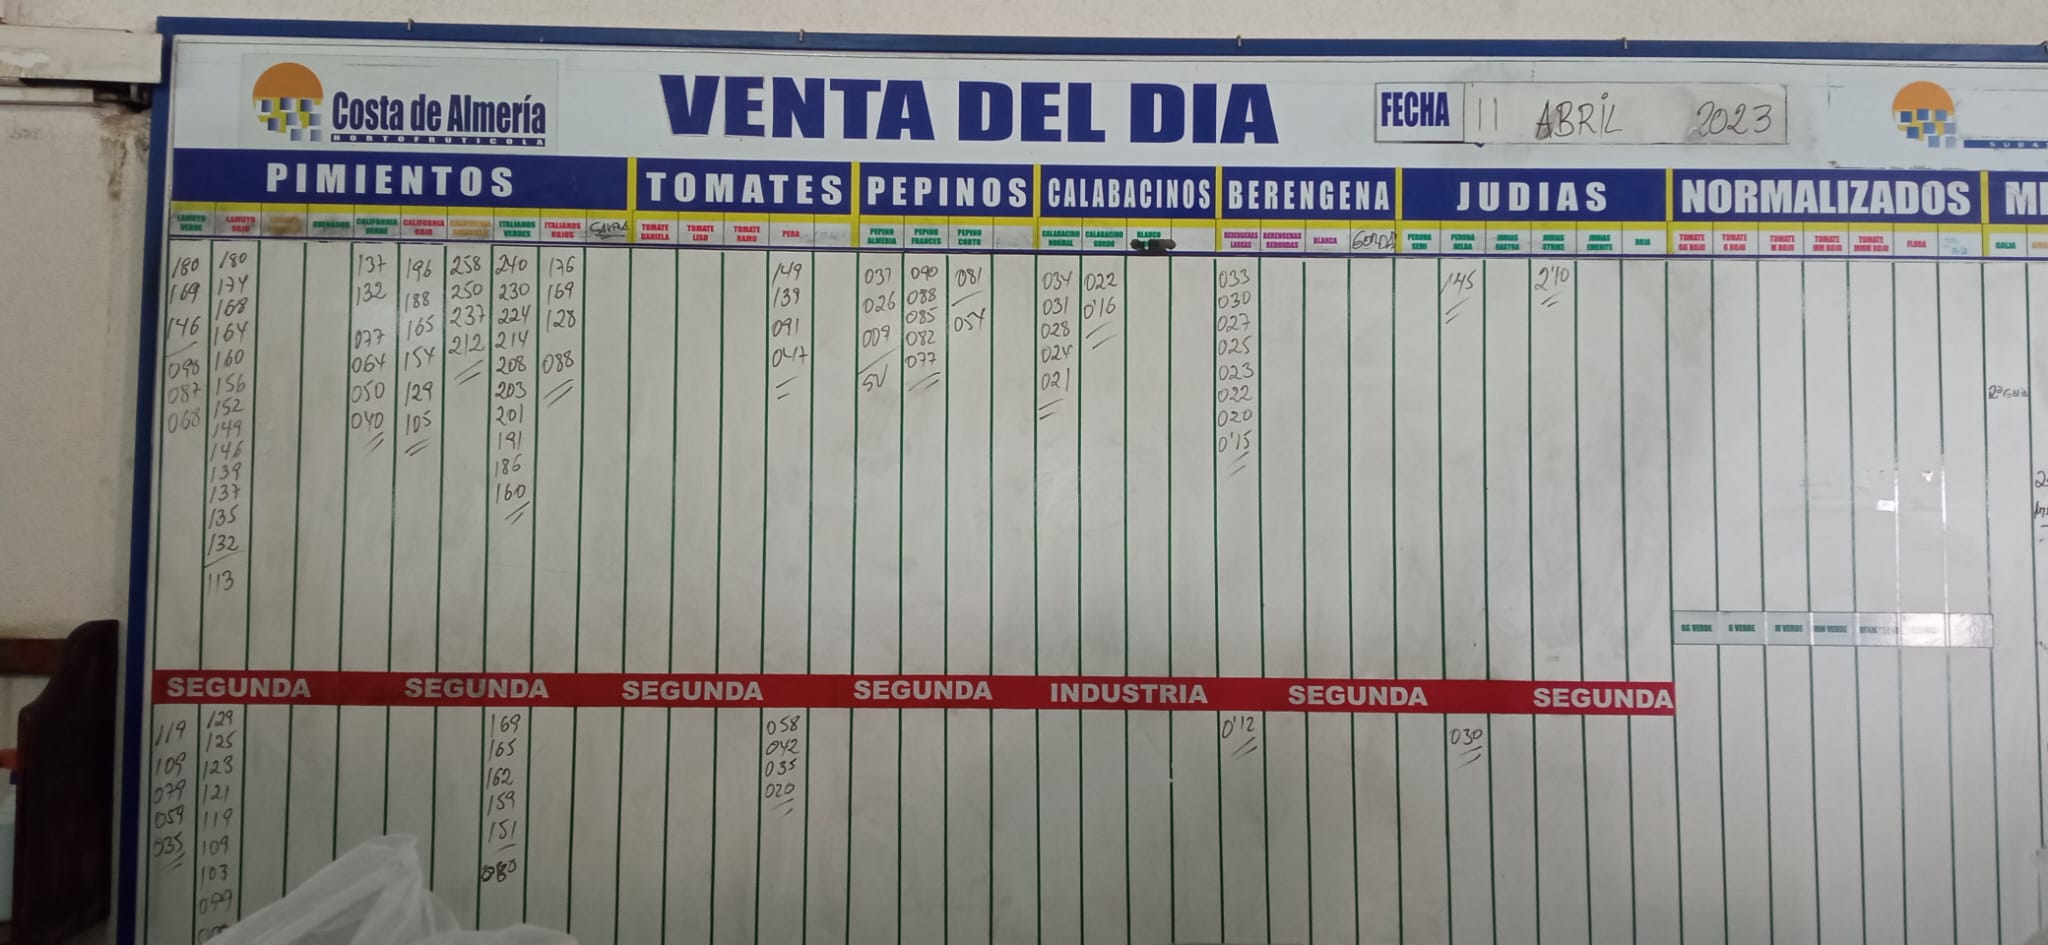 Costa de Almería
HORTOFRUTICOLA
VENTA DEL DIA
FECHA 11 ABRIL 2023
PIMIENTOS TOMATES PEPINOS CALABACINOS BERENGENA JUDIAS NORMALIZADOS
LAMUYO VERDE
LAMUYO ROJO
CALIFORNIA VERDE
CALIFORNIA ROJO
ITALIANOS VERDES
ITALIANOS ROJOS
TOMATE DANIELA
TOMATE LISO
TOMATE RAMO
PERA
PEPINO ALMERIA
PEPINO FRANCES
PEPINO CORTO
CALABACINO NORMAL
CALABACINO GORDO
BLANCO
BERENGENAS LARGAS
BERENGENAS REDONDAS
BLANCA
GORDA
PERONA SEMI
PERONA HELDA
JUDIAS STRIKE
ROJA
TOMATE GG ROJO
TOMATE G ROJO
TOMATE M ROJO
TOMATE MM ROJO
TOMATE MMM ROJO
FLORA
GALIA
180
169
146
098
087
068
180
174
168
164
160
156
152
149
146
139
137
135
132
113
137
132
077
064
050
040
196
188
165
154
129
105
258
250
237
212
240
230
224
214
208
203
201
191
186
160
176
169
128
088
149
139
091
047
037
026
009
SV
090
088
085
082
077
081
054
034
031
028
024
021
022
0'16
033
030
027
025
023
022
020
0'15
145
2'10
GG VERDE
G VERDE
M VERDE
MM VERDE
SEGUNDA SEGUNDA SEGUNDA SEGUNDA INDUSTRIA SEGUNDA SEGUNDA
119
109
079
059
035
129
125
123
121
119
109
103
099
169
165
162
159
151
080
058
042
035
020
0'12
030